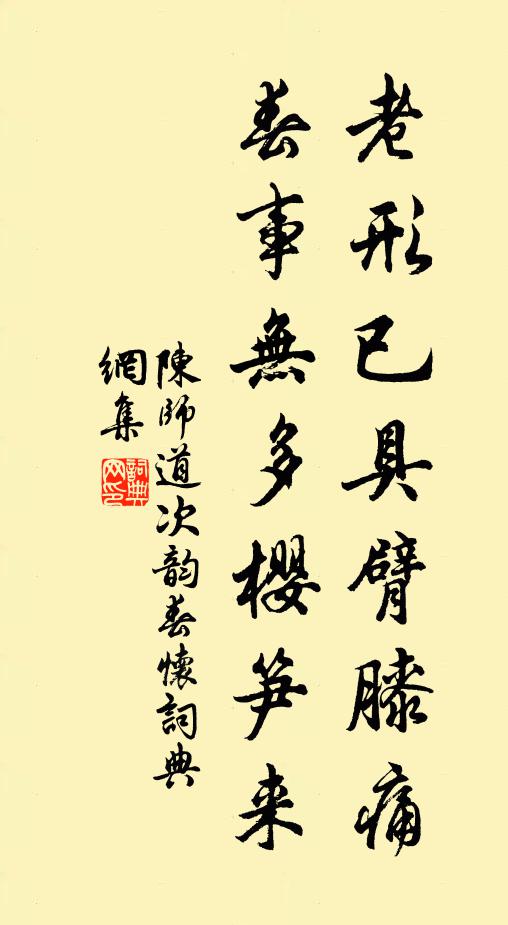 老形已具臂膝痛
春事無多櫻笋来
陳師道次韵春懷詞典
網集
詞典
网印